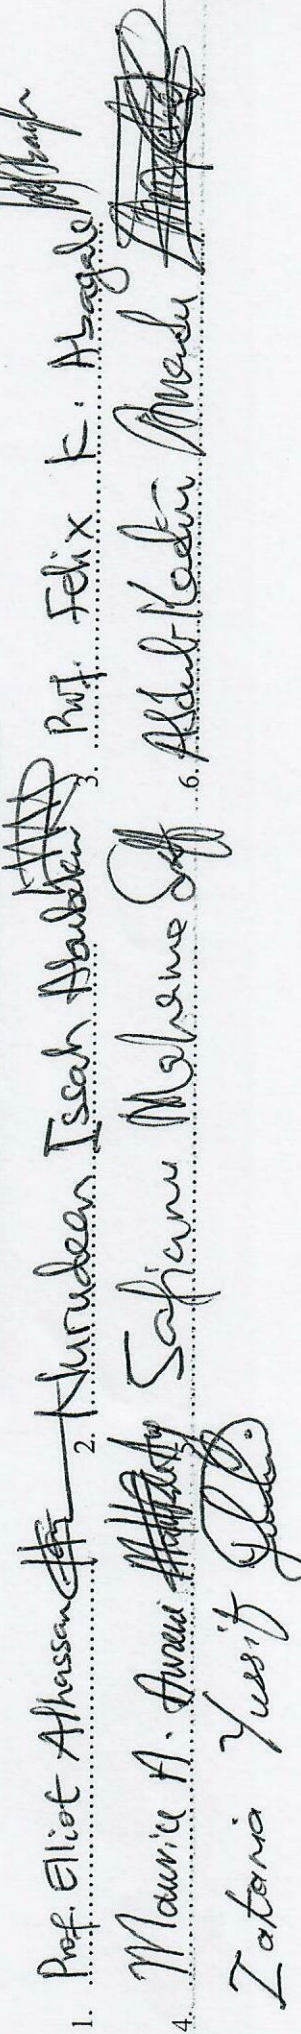 1. Prof. Elliot Alhassan 2. Nurudeen Issah Abubakari 3. Prof. Felix K. Abagale
4. Maurice A. 5. Safianu Mahama 6. Abdul-Kadiri Amadu
Zakaria Yussif